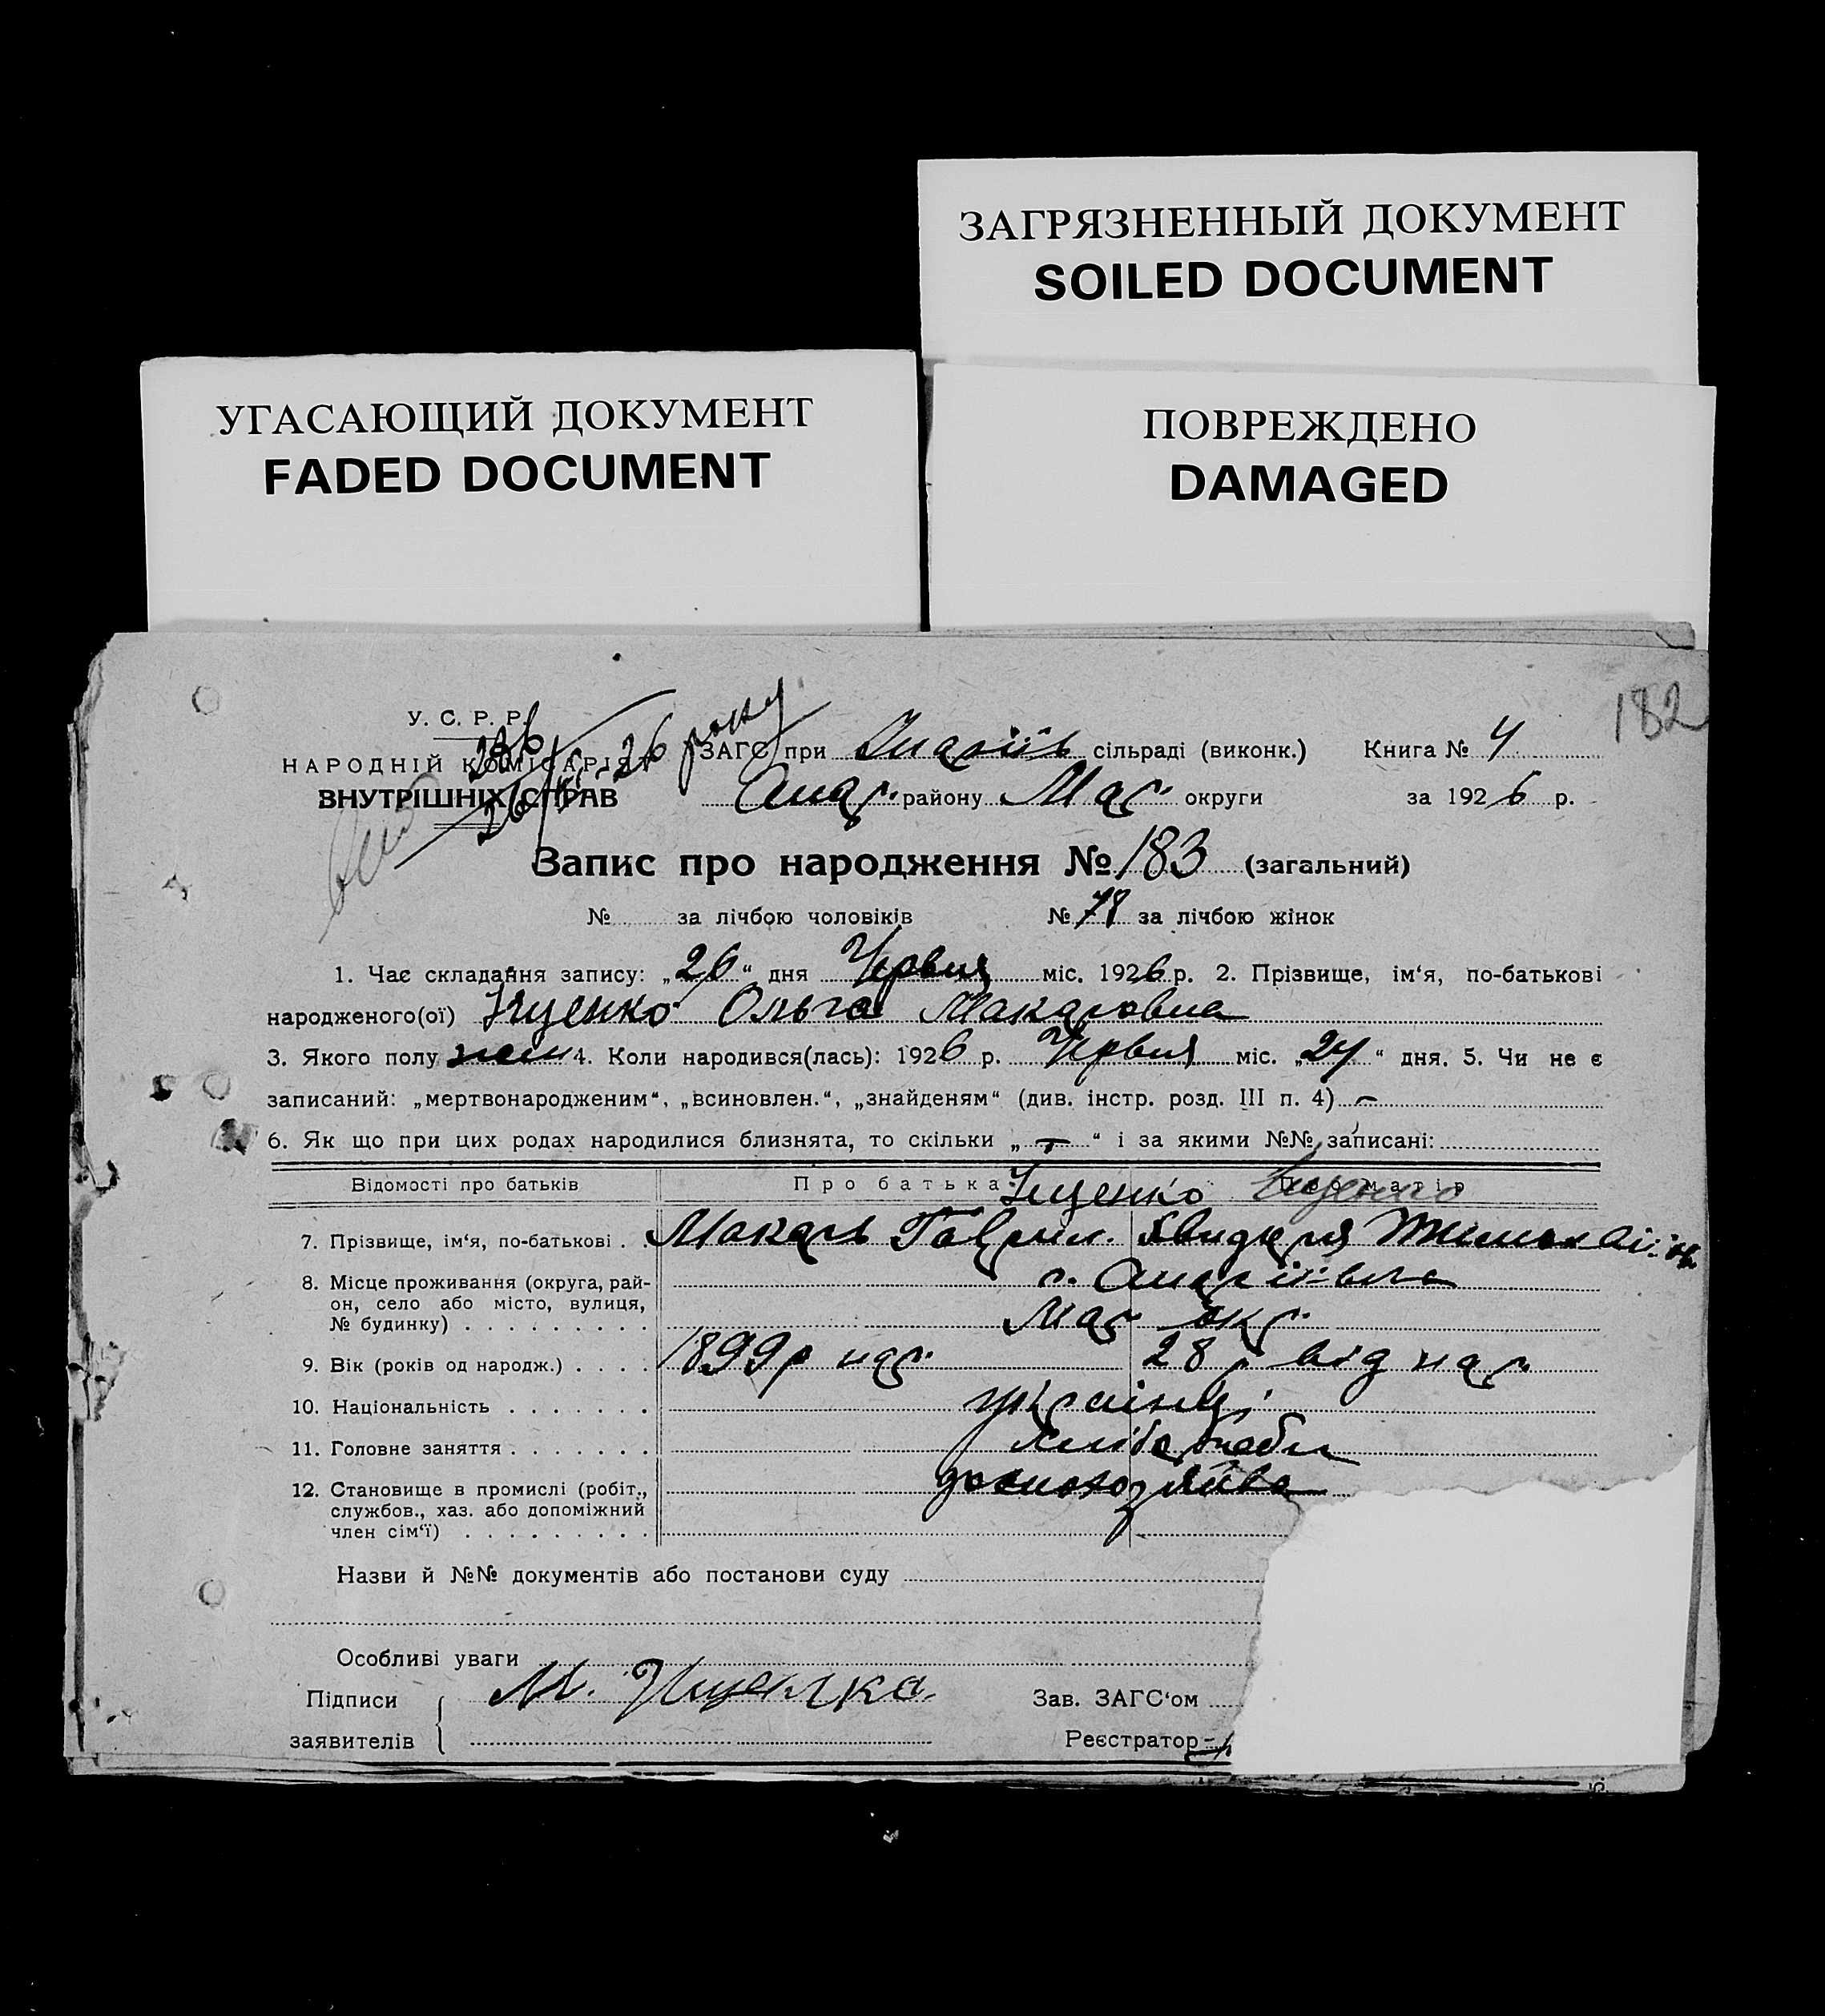 ЗАГРЯЗНЕННЫЙ ДОКУМЕНТ
SOILED DOCUMENT
УГАСАЮЩИЙ ДОКУМЕНТ
FADED DOCUMENT
ПОВРЕЖДЕНО
DAMAGED
182
У. С. Р. Р.
НАРОДНІЙ КОМІСАРІЯТ
ВНУТРІШНІХ СПРАВ
26 року
ЗАГС при сільраді (виконк.) Книга № 4
Андр. району Мар. округи за 1926 р.
Запис про народження № 183 (загальний)
№ за лічбою чоловіків № 78 за лічбою жінок
1. Час складання запису: „26“ дня Червня міс. 1926 р. 2. Прізвище, ім‘я, по-батькові
народженого(ої) Іщенко Ольга Макаровна
3. Якого полу жен 4. Коли народився(лась): 1926 р. Червня міс. „24“ дня. 5. Чи не є
записаний: „мертвонародженим“, „всиновлен.“, „знайденям“ (див. інстр. розд. III п. 4) –
6. Як що при цих родах народилися близнята, то скільки „–“ і за якими №№ записані:
Відомості про батьків Про батька Про матір
Іщенко Іщенко
7. Прізвище, ім‘я, по-батькові . . Макарь Гаврил.
8. Місце проживання (округа, рай-
он, село або місто, вулиця,
№ будинку) . . . . . . . . .
с. Андріївка
Мар окр.
9. Вік (років од народж.) . . . . 1899 р нар. 28 р від нар.
10. Національність . . . . . . . українці
11. Головне заняття . . . . . . . хлібороби
12. Становище в промислі (робіт.,
службов., хаз. або допоміжний
член сім‘ї) . . . . . . . . .
Назви й №№ документів або постанови суду
Особливі уваги
Підписи М. Іщенко Зав. ЗАГС‘ом
заявителів Реєстратор